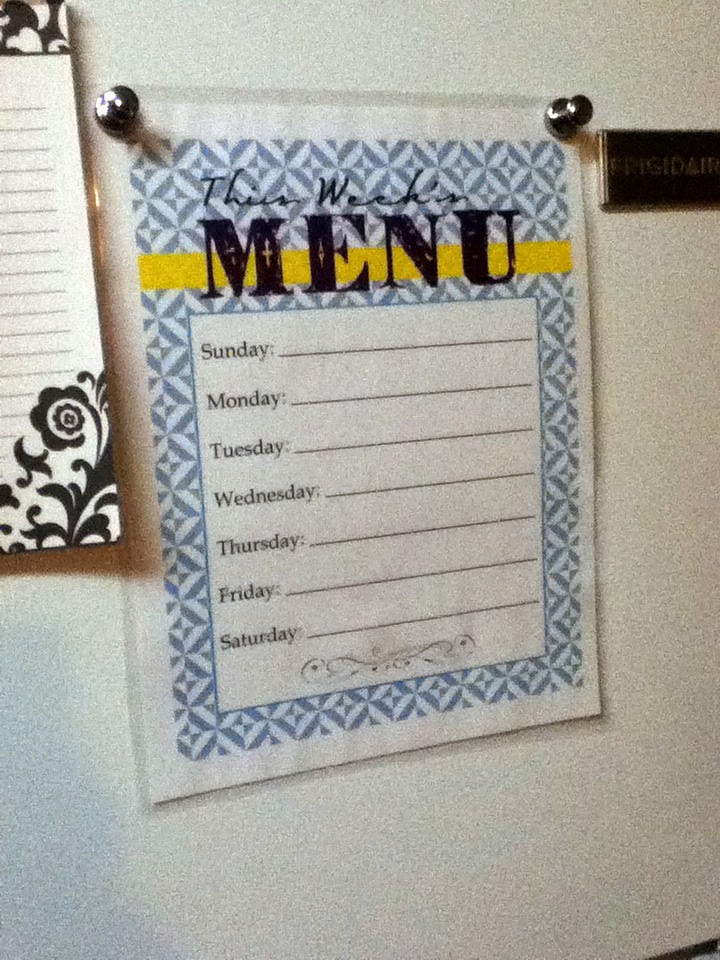 This Week's
MENU
FRIGIDAIR
Sunday:
Monday:
Tuesday:
Wednesday:
Thursday:
Friday:
Saturday: